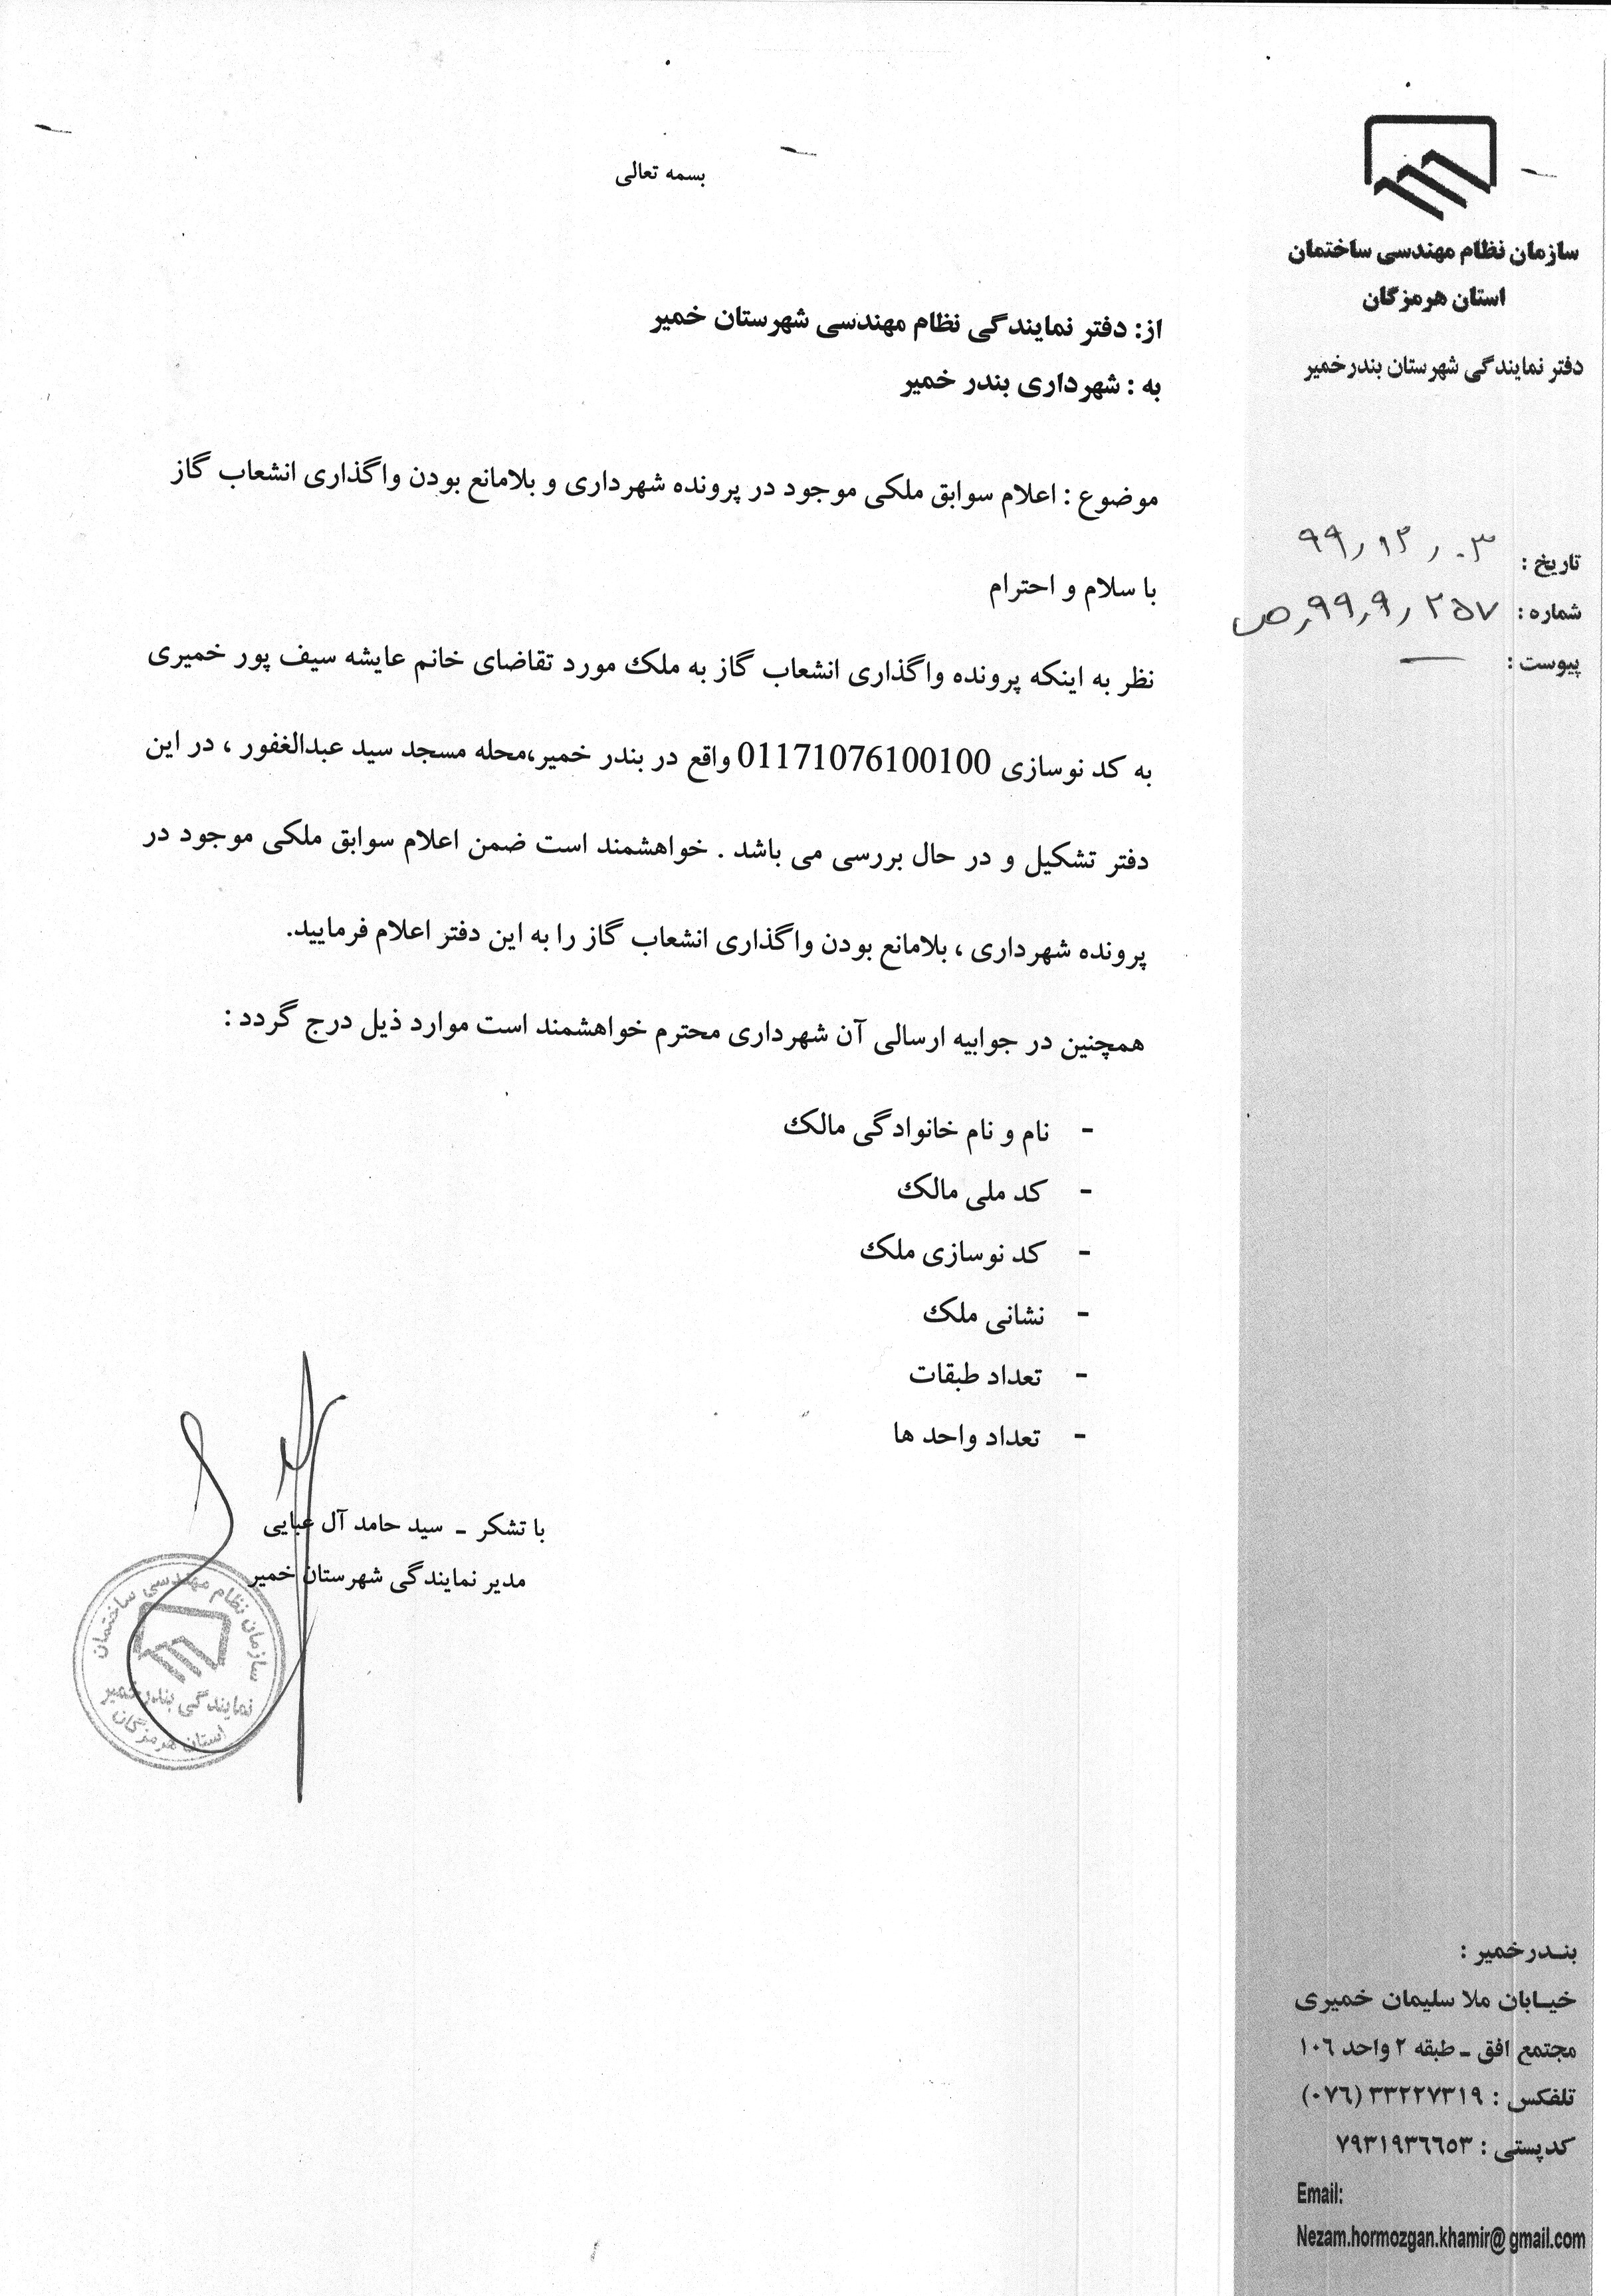 بسمه تعالی
سازمان نظام مهندسی ساختمان
استان هرمزگان
دفتر نمایندگی شهرستان بندرخمیر
تاریخ : ۹۹٫۱۲٫۰۳
شماره : ۲۵۷٫۹٫۹۹٫ص
پیوست : —
از: دفتر نمایندگی نظام مهندسی شهرستان خمیر
به : شهرداری بندر خمیر
موضوع : اعلام سوابق ملکی موجود در پرونده شهرداری و بلامانع بودن واگذاری انشعاب گاز
با سلام و احترام
نظر به اینکه پرونده واگذاری انشعاب گاز به ملک مورد تقاضای خانم عایشه سیف پور خمیری
به کد نوسازی 01171076100100 واقع در بندر خمیر،محله مسجد سید عبدالغفور ، در این
دفتر تشکیل و در حال بررسی می باشد . خواهشمند است ضمن اعلام سوابق ملکی موجود در
پرونده شهرداری ، بلامانع بودن واگذاری انشعاب گاز را به این دفتر اعلام فرمایید.
همچنین در جوابیه ارسالی آن شهرداری محترم خواهشمند است موارد ذیل درج گردد :
- نام و نام خانوادگی مالک
- کد ملی مالک
- کد نوسازی ملک
- نشانی ملک
- تعداد طبقات
- تعداد واحد ها
با تشکر - سید حامد آل عبایی
مدیر نمایندگی شهرستان خمیر
سازمان نظام مهندسی ساختمان
نمایندگی بندرخمیر
استان هرمزگان
بندرخمیر :
خیابان ملا سلیمان خمیری
مجتمع افق - طبقه ۲ واحد ۱۰۶
تلفکس : ۳۳۲۲۷۳۱۹ (۰۷۶)
کدپستی : ۷۹۳۱۹۳۶۶۵۳
Email:
Nezam.hormozgan.khamir@gmail.com